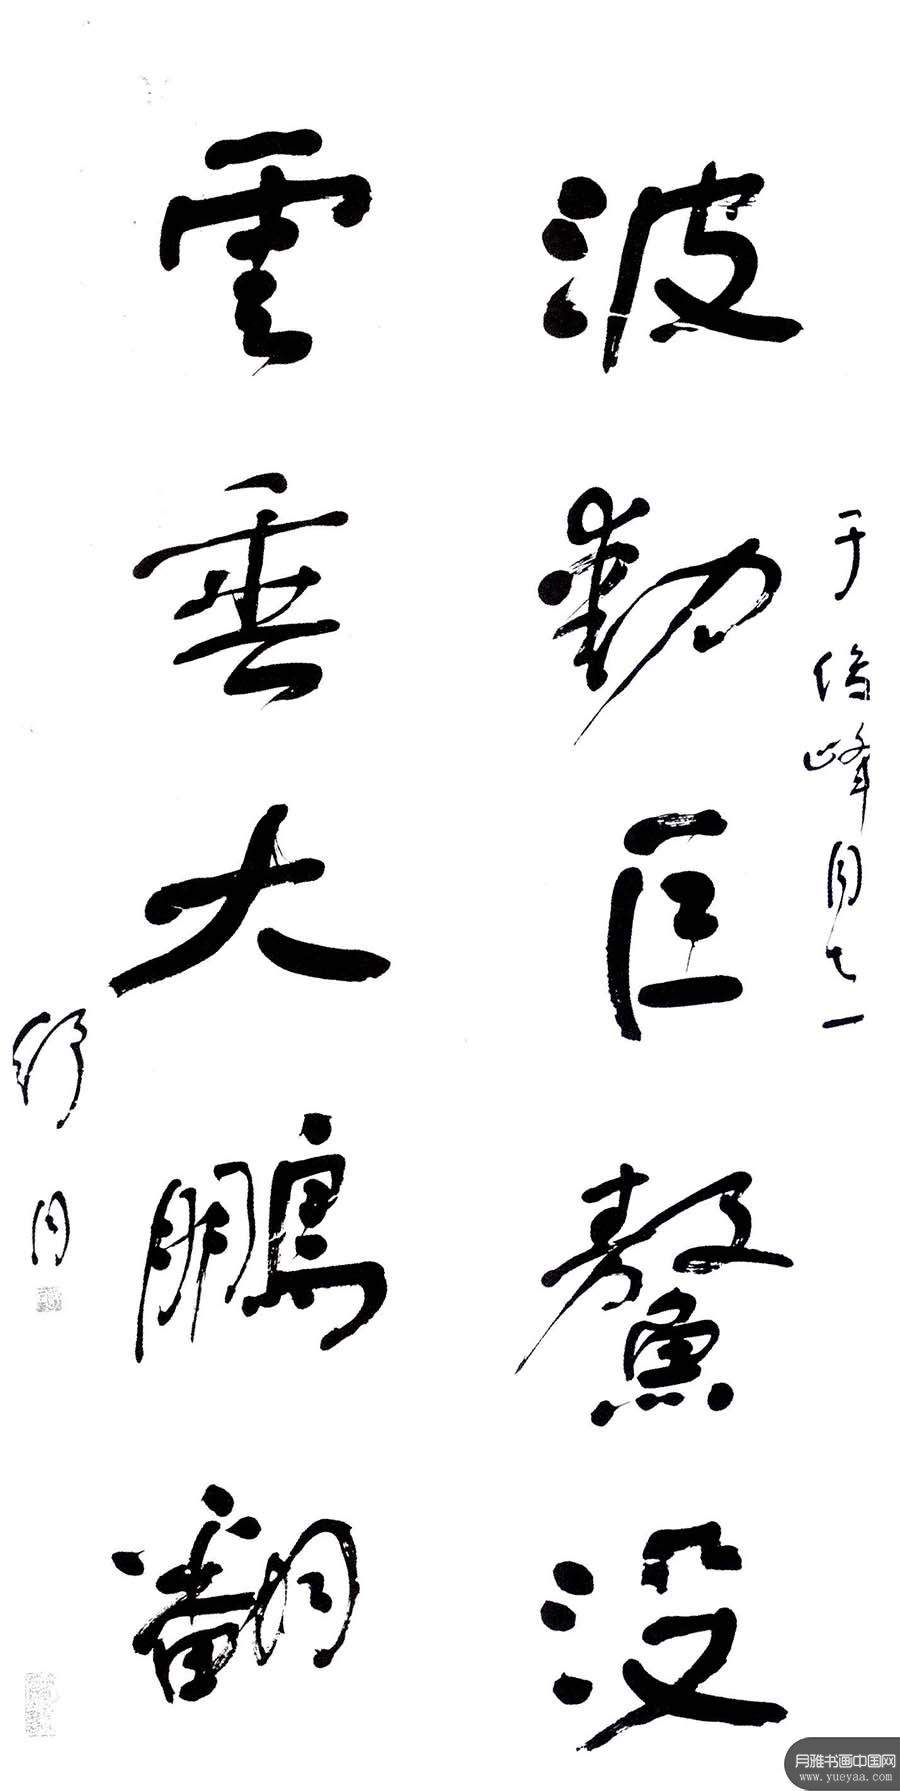 于峰同志
波動巨鰲沒
雲垂大鵬翻
舒同
月雅书画中国网
www.yueyaa.com